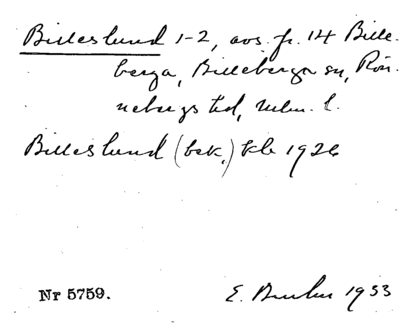 Billeslund 1-2, avs. fr. 14 Bille-
berga, Billeberga sn, Rön-
nebergs hd, Mlm. l.
Billeslund (bek.) kb 1926
Nr 5759.
E. 1933